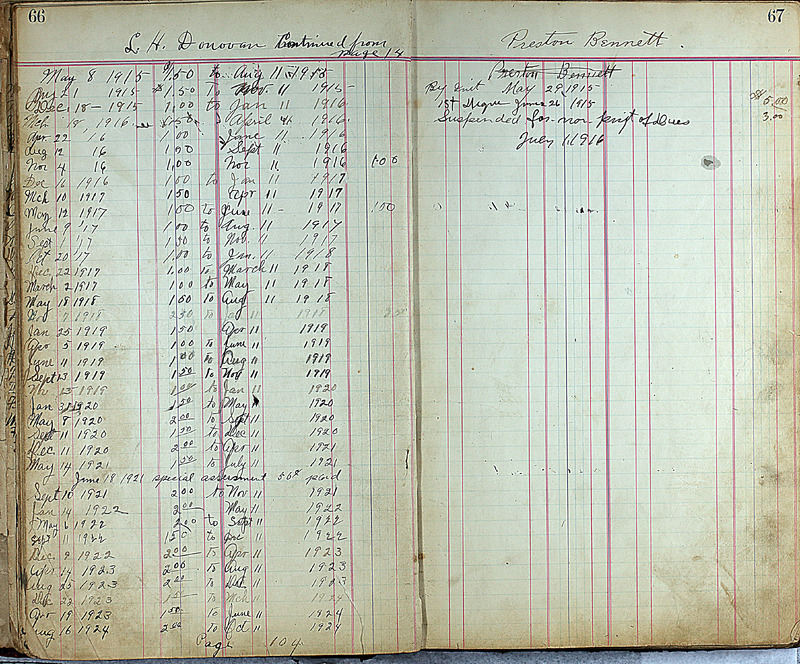 66
L. H. Donovan Continued from
page 14
May 8 1915 1.50 to Aug 11 1915
Aug 1 1915 1.50 to Nov. 11 1915
Dec 18 - 1915 1.00 to Jan 11 1916
Mch 18, 1916 April 11 1916
Apr 22 16 1.00 June 11 1916
Aug 12 16 1.50 Sept 11 1916
Nov 4 16 1.00 Nov 11 1916 1.00
Dec 16 1916 1.00 to Jan 11 1917
Mch 10 1917 1.50 Apr 11 1917
May 12 1917 1.00 to June 11 - 1917 1.50
June 9 '17 1.00 to Aug 11 1917
Sept 1 '17 1.50 to Nov. 11 1917
Oct 20 '17 1.00 to Jan. 11 1918
Dec. 22 1917 1.00 to March 11 1918
March 2 1917 1.00 to May 11 1918
May 18 1918 1.50 to Aug 11 1918
Nov 9 1918 2.50 to Jan 11 1918
Jan 25 1919 1.50 Apr 11 1919
Apr 5 1919 1.00 to June 11 1919
June 11 1919 1.00 to Aug 11 1919
Sept 13 1919 1.50 to Nov 11 1919
Nov 15 1919 1.00 to Jan 11 1920
Jan 31 1920 1.50 to May 11 1920
May 8 1920 2.00 to Sept 11 1920
Sept 11 1920 1.50 to Dec 11 1920
Dec 11 1920 2.00 to Apr 11 1921
May 14 1921 1.50 to July 11 1921
June 18 1921 special assessment 50¢ paid
Sept 10 1921 2.00 to Nov 11 1921
Jan 14 1922 2.00 May 11 1922
May 6 1922 2.00 to Sept 11 1922
Sept 11 1922 1.50 to Dec 11 1922
Dec. 9 1922 2.00 to Apr 11 1923
Apr 14 1923 2.00 to Aug 11 1923
Aug 25 1923 2.00 to Dec 11 1923
Dec 22 1923 1.50 to Mch 11 1924
Apr 19 1923 1.50 to June 11 1924
Aug 16 1924 2.00 to Oct 11 1924
Page 104
67
Preston Bennett.
Preston Bennett
By Init May 29 1915 5.00
1st Degree June 26 1915 3.00
Suspended for non paymt of Dues
July 1, 1916